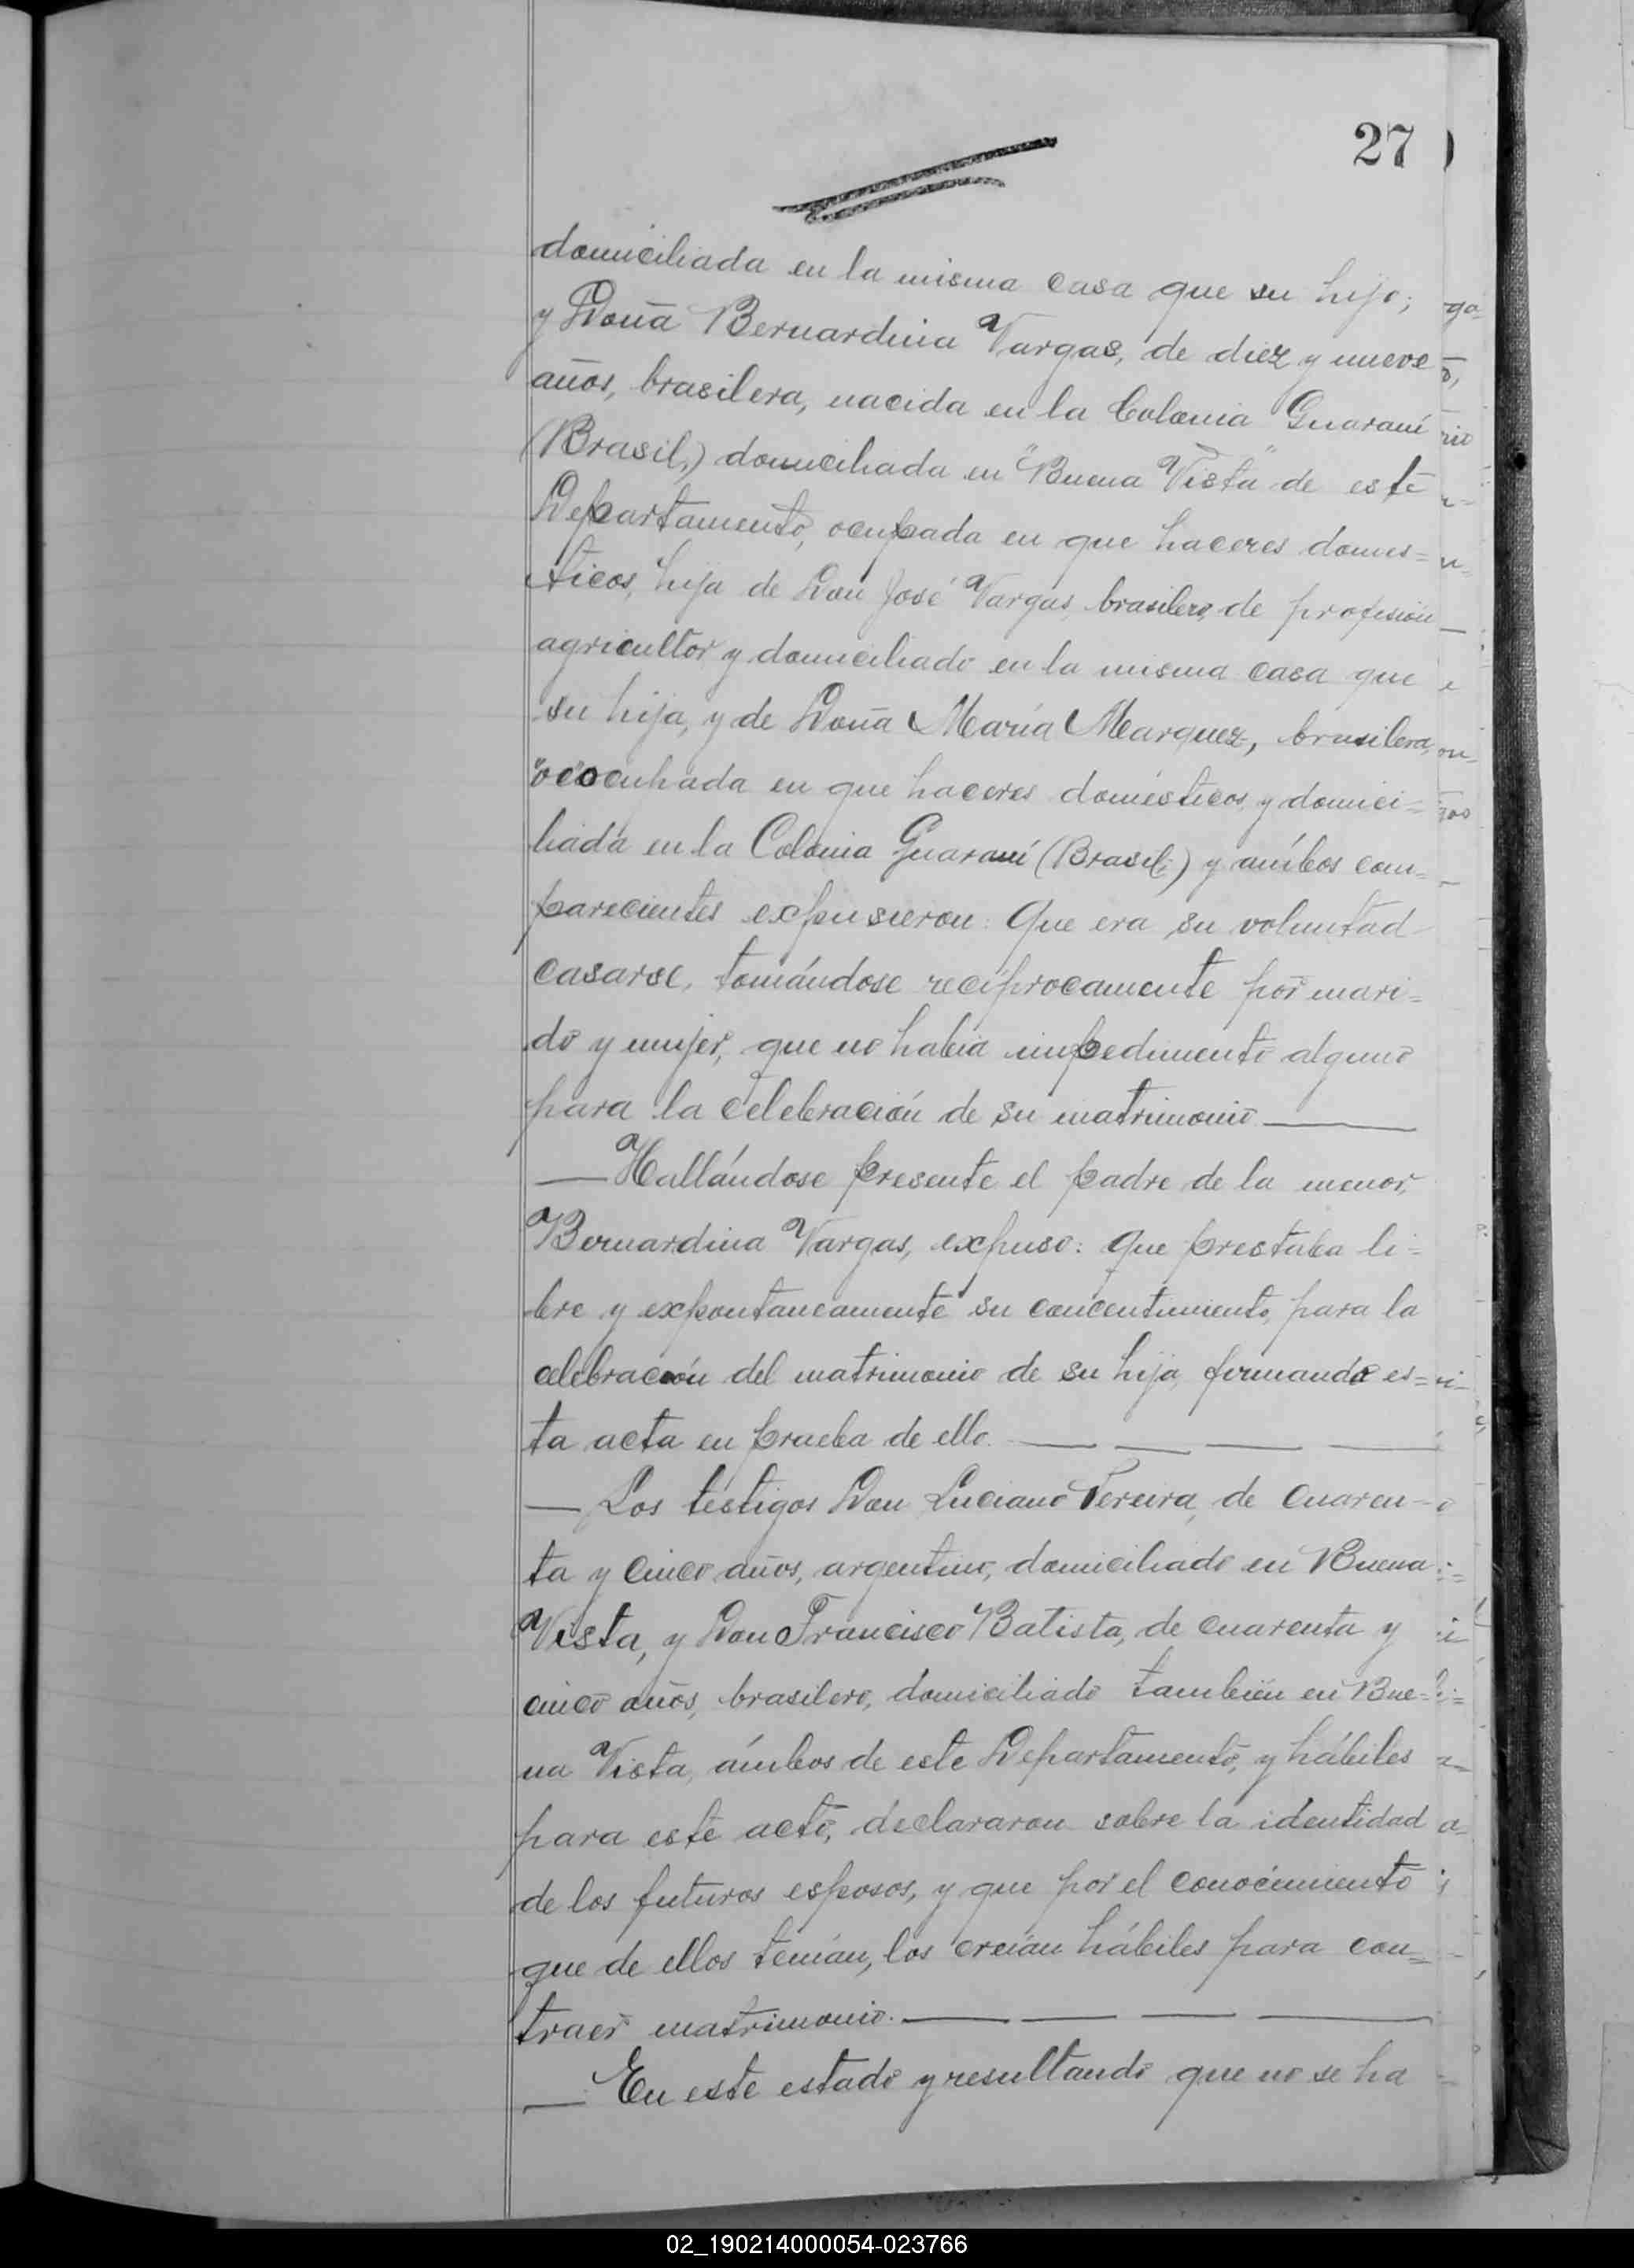 27
domiciliada en la misma casa que su hijo;
y Doña Bernardina Vargas, de diez y nueve
años, brasilera, nacida en la Colonia Guaraní
(Brasil,) domiciliada en "Buena Vista" de este
Departamento, ocupada en que haceres domes=
ticos, hija de Don José Vargas, brasilero, de profesión
agricultor y domiciliado en la misma casa que
su hija, y de Doña María Marquez, brasilera,
domésticos y domici=
liada en la Colonia Guaraní (Brasil;) y ámbos com=
parecientes expusieron: Que era su voluntad
casarse, tomándose recíprocamente por mari=
do y mujer, que no habia impedimento alguno
para la celebración de su matrimonio
— Hallándose presente el padre de la menor,
Bernardina Vargas, expuso: Que prestaba li=
bre y expontaneamente su concentimiento, para la
celebración del matrimonio de su hija, firmando es=
ta acta en prueba de ello.
— Los testigos Don Luciano Pereira, de cuaren-
ta y cinco años, argentino, domiciliado en Buena
Vista, y Don Francisco Batista, de cuarenta y
cinco años, brasilero, domiciliado también en Bue=
na Vista, ámbos de este Departamento, y hábiles
para este acto, declararon sobre la identidad
de los futuros esposos, y que por el conocimiento
que de ellos tenían, los creían hábiles para con=
traer matrimonio.
— En este estado y resultando que no se ha
02_190214000054-023766